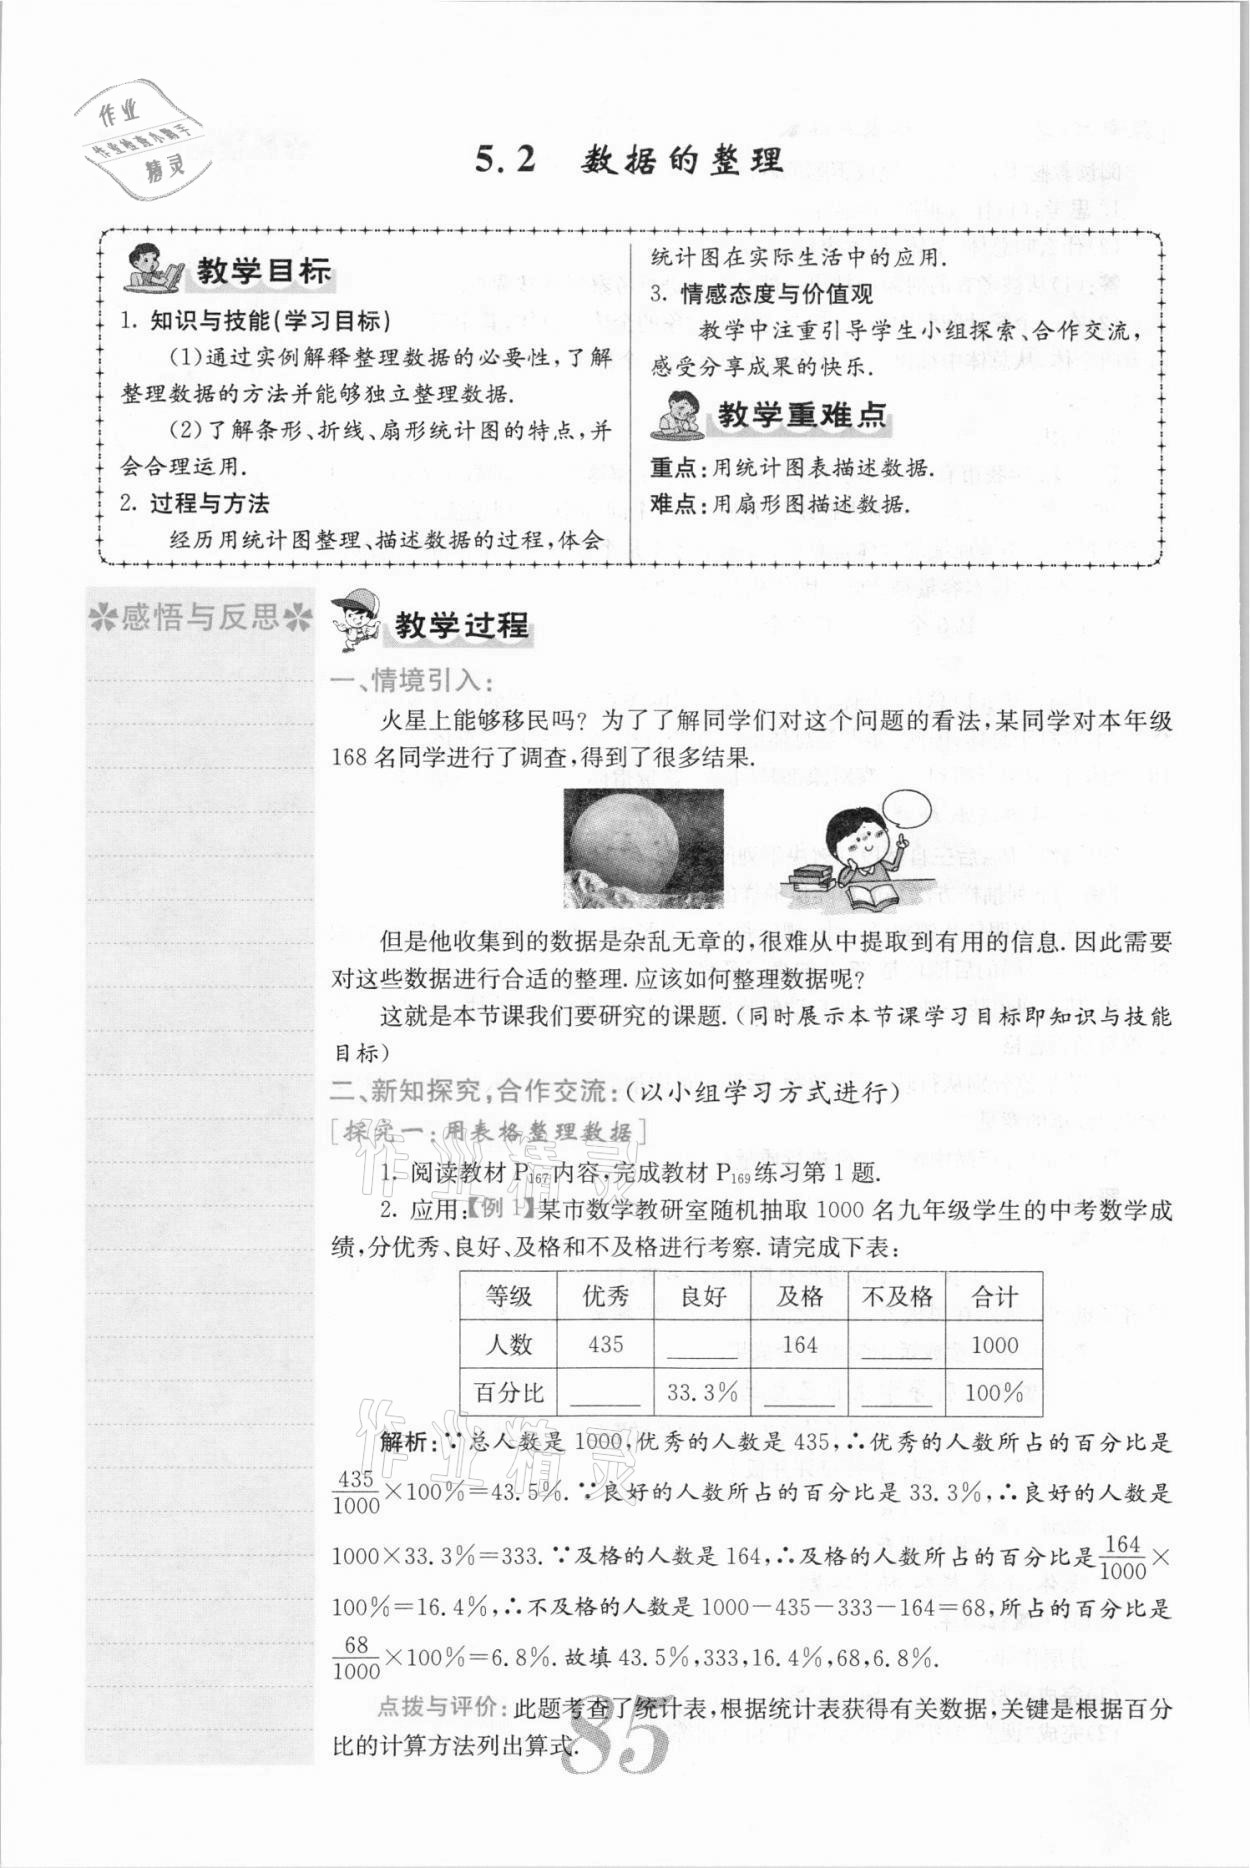 作业
作业检查小助手
精灵
5.2 数据的整理
教学目标
1. 知识与技能(学习目标)
(1)通过实例解释整理数据的必要性,了解
整理数据的方法并能够独立整理数据.
(2)了解条形、折线、扇形统计图的特点,并
会合理运用.
2. 过程与方法
经历用统计图整理、描述数据的过程,体会
统计图在实际生活中的应用.
3. 情感态度与价值观
教学中注重引导学生小组探索、合作交流,
感受分享成果的快乐.
教学重难点
重点:用统计图表描述数据.
难点:用扇形图描述数据.
感悟与反思
教学过程
一、情境引入:
火星上能够移民吗? 为了了解同学们对这个问题的看法,某同学对本年级
168 名同学进行了调查,得到了很多结果.
但是他收集到的数据是杂乱无章的,很难从中提取到有用的信息. 因此需要
对这些数据进行合适的整理. 应该如何整理数据呢?
这就是本节课我们要研究的课题. (同时展示本节课学习目标即知识与技能
目标)
二、新知探究,合作交流:(以小组学习方式进行)
[探究一:用表格整理数据]
1. 阅读教材 P167内容,完成教材 P169练习第 1 题.
2. 应用:【例 1】某市数学教研室随机抽取 1000 名九年级学生的中考数学成
绩,分优秀、良好、及格和不及格进行考察. 请完成下表:
等级 优秀 良好 及格 不及格 合计
人数 435 ______ 164 ______ 1000
百分比 ______ 33.3% ______ ______ 100%
解析:∵总人数是 1000,优秀的人数是 435,∴优秀的人数所占的百分比是
435/1000×100%=43.5%. ∵良好的人数所占的百分比是 33.3%,∴良好的人数是
1000×33.3%=333. ∵及格的人数是 164,∴及格的人数所占的百分比是164/1000×
100%=16.4%,∴不及格的人数是 1000-435-333-164=68,所占的百分比是
68/1000×100%=6.8%. 故填 43.5%,333,16.4%,68,6.8%.
点拨与评价:此题考查了统计表,根据统计表获得有关数据,关键是根据百分
比的计算方法列出算式.
85
作业精灵
作业精灵